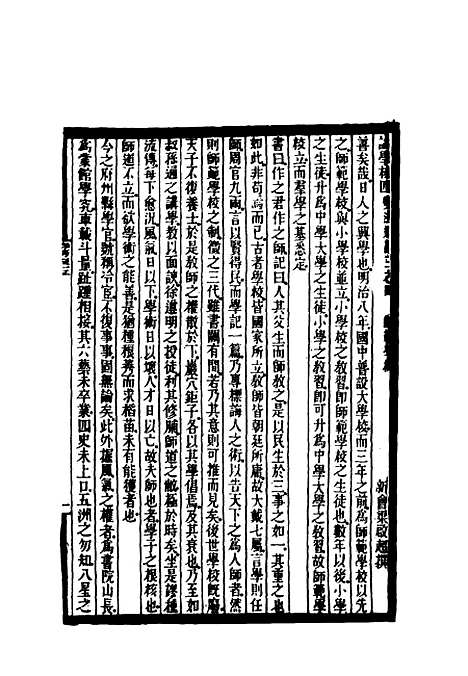 論學校四 變法通議三之四 師範學校
新會梁啟超撰
善矣哉日人之興學也明治八年國中普設大學校而三年之前爲師範學校以先
之師範學校與小學校並立小學校之教習卽師範學校之生徒也數年以後小學
之生徒升爲中學大學之生徒小學之教習卽可升爲中學大學之教習故師範學
校立而羣學之基悉定
書曰作之君作之師記曰人其父生而師教之是以民生於三事之如一其重之也
如此非苟焉而已古者學校皆國家所立教師皆朝廷所庸故大戴七屬言學則任
師周官九兩言以賢得民而學記一篇乃專標誨人之術以告天下之爲人師者然
則師範學校之制徵之三代雖書闕有間若乃其意則可推而見矣後世學校旣廢
天子不復養士於是教師之權散於下嚴穴鉅子各以其學倡焉及其衰也乃至如
叔孫通之講學教以面諛徐遵明之授徒利其修脯師道之敝極於時矣坐是謬種
流傳每下愈況風氣日以下學術日以壞人才日以亡故夫師也者學子之根核也
師道不立而欲學術之能善是猶種稂莠而求稻苗未有能穫者也
今之府州縣學官號稱冷官不復事事固無論矣此外握風氣之權者爲書院山長
爲蒙館學究車載斗量趾踵相接其六藝未卒業四史未上口五洲之勿知八星之
一